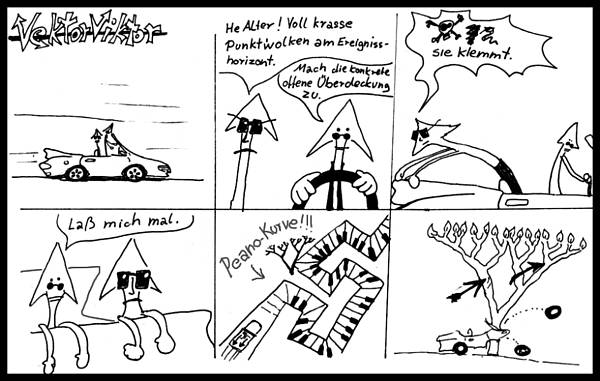 VektorViktor
He Alter! Voll krasse
Punktwolken am Ereignis=
horizont.
Mach die konkrete
offene Überdeckung
zu.
sie klemmt.
Laß mich mal.
Peano-Kurve!!!